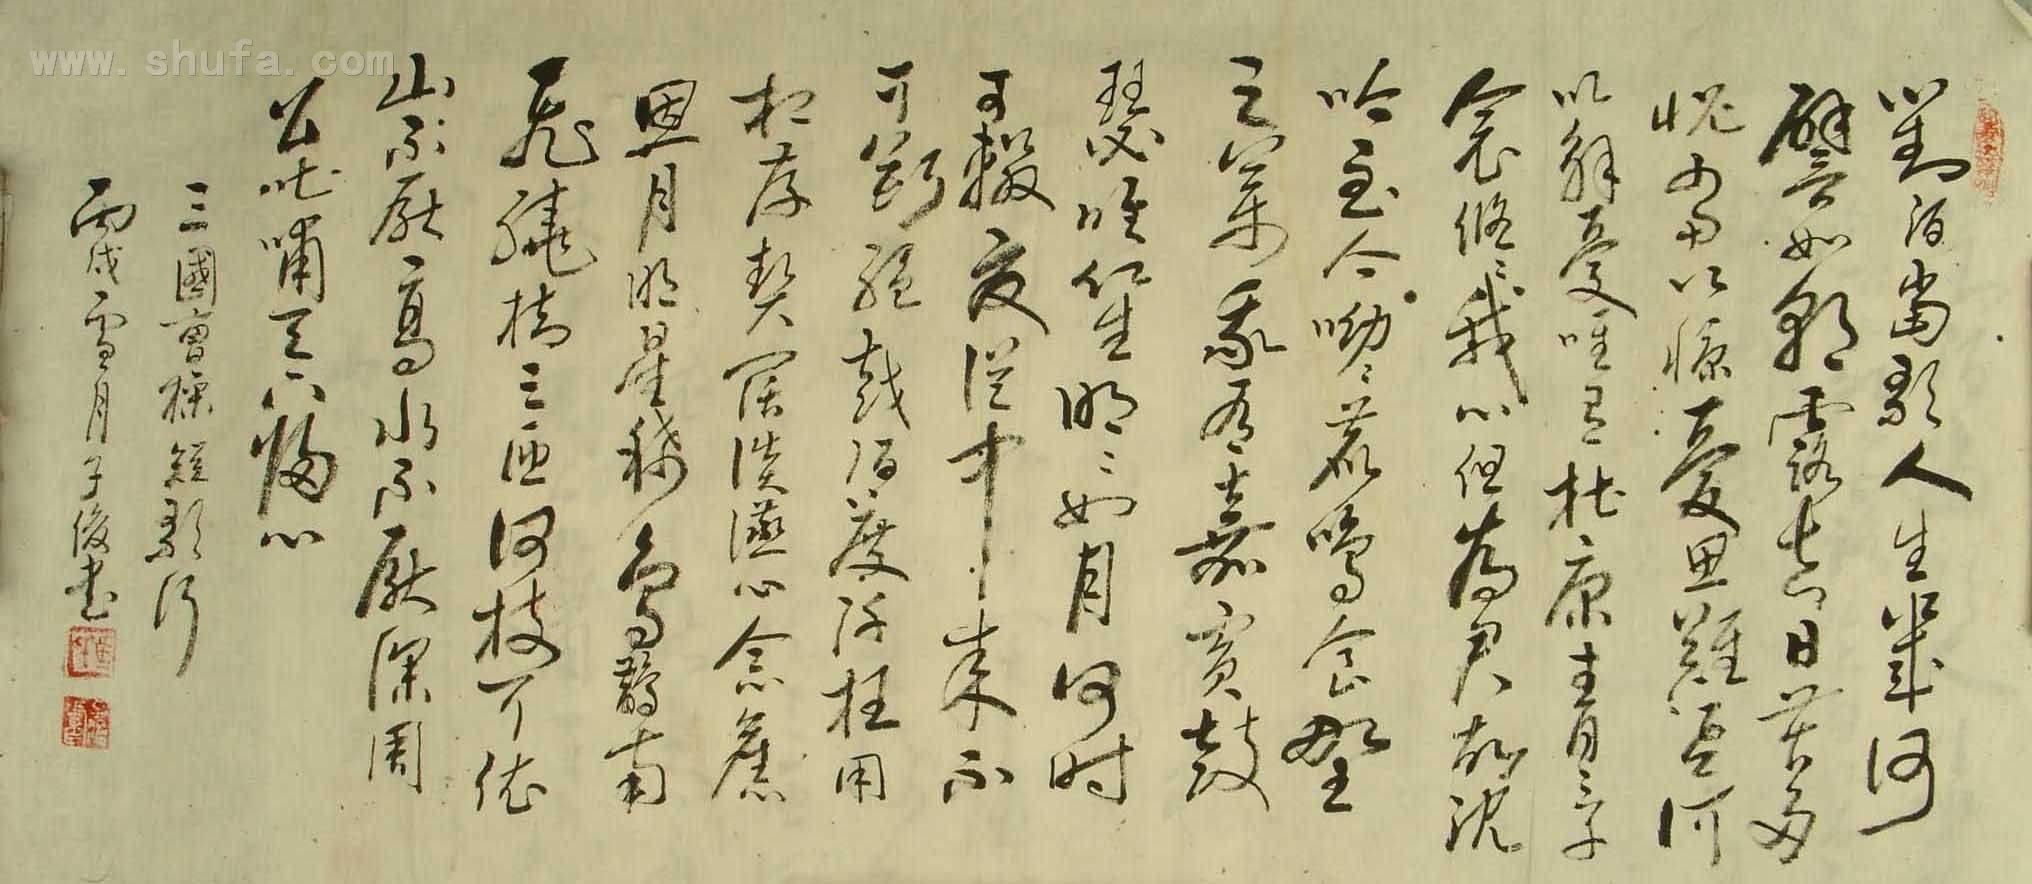 www.shufa.com
對酒當歌人生幾何
譬如朝露去日苦多
慨當以慷憂思難忘何
以解憂唯有杜康青〻子
衾悠〻我心但為君故沈
吟至今呦〻鹿鳴食野
之苹我有嘉賓鼓
瑟吹笙明〻如月何時
可輟憂從中來不
可斷絕越陌度阡枉用
相存契闊談讌心念舊
恩月明星稀烏鵲南
飛繞樹三匝何枝可依
山不厭高水不厭深周
公吐哺天下歸心
三國曹操短歌行
丙戌雪月子俊書